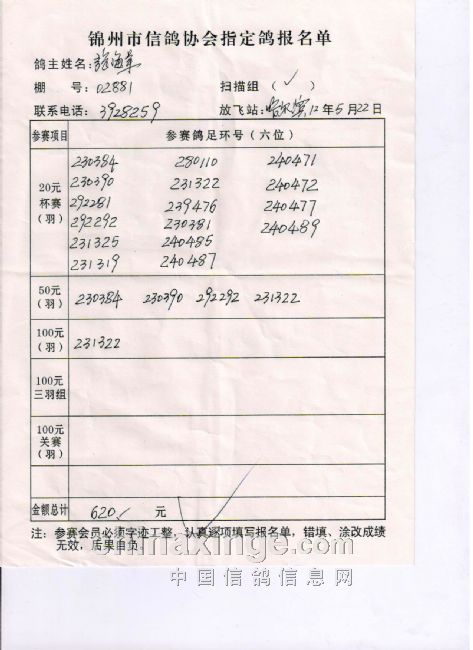 锦州市信鸽协会指定鸽报名单
鸽主姓名:
棚 号: 02881 扫描组 ( ✓ )
联系电话: 3928259 放飞站: 哈尔滨 12 年 5 月 22 日
参赛项目 参赛鸽足环号(六位)
20元杯赛(羽)
230384 280110 240471
230390 231322 240472
292281 239476 240477
292292 230381 240489
231325 240485
231319 240487
50元(羽) 230384 230390 292292 231322
100元(羽) 231322
100元三羽组
100元关赛(羽)
金额总计 620 元
注: 参赛会员必须字迹工整,认真逐项填写报名单,错填、涂改成绩
无效,后果自负。
chinaxinge.com
中国信鸽信息网